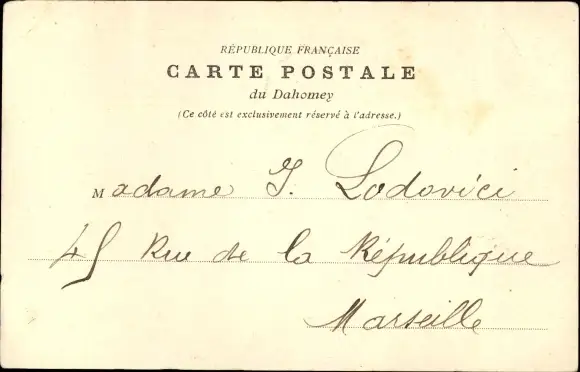 RÉPUBLIQUE FRANÇAISE
CARTE POSTALE
du Dahomey
(Ce côté est exclusivement réservé à l'adresse.)
Madame J. Lodovici
45 Rue de la République
Marseille